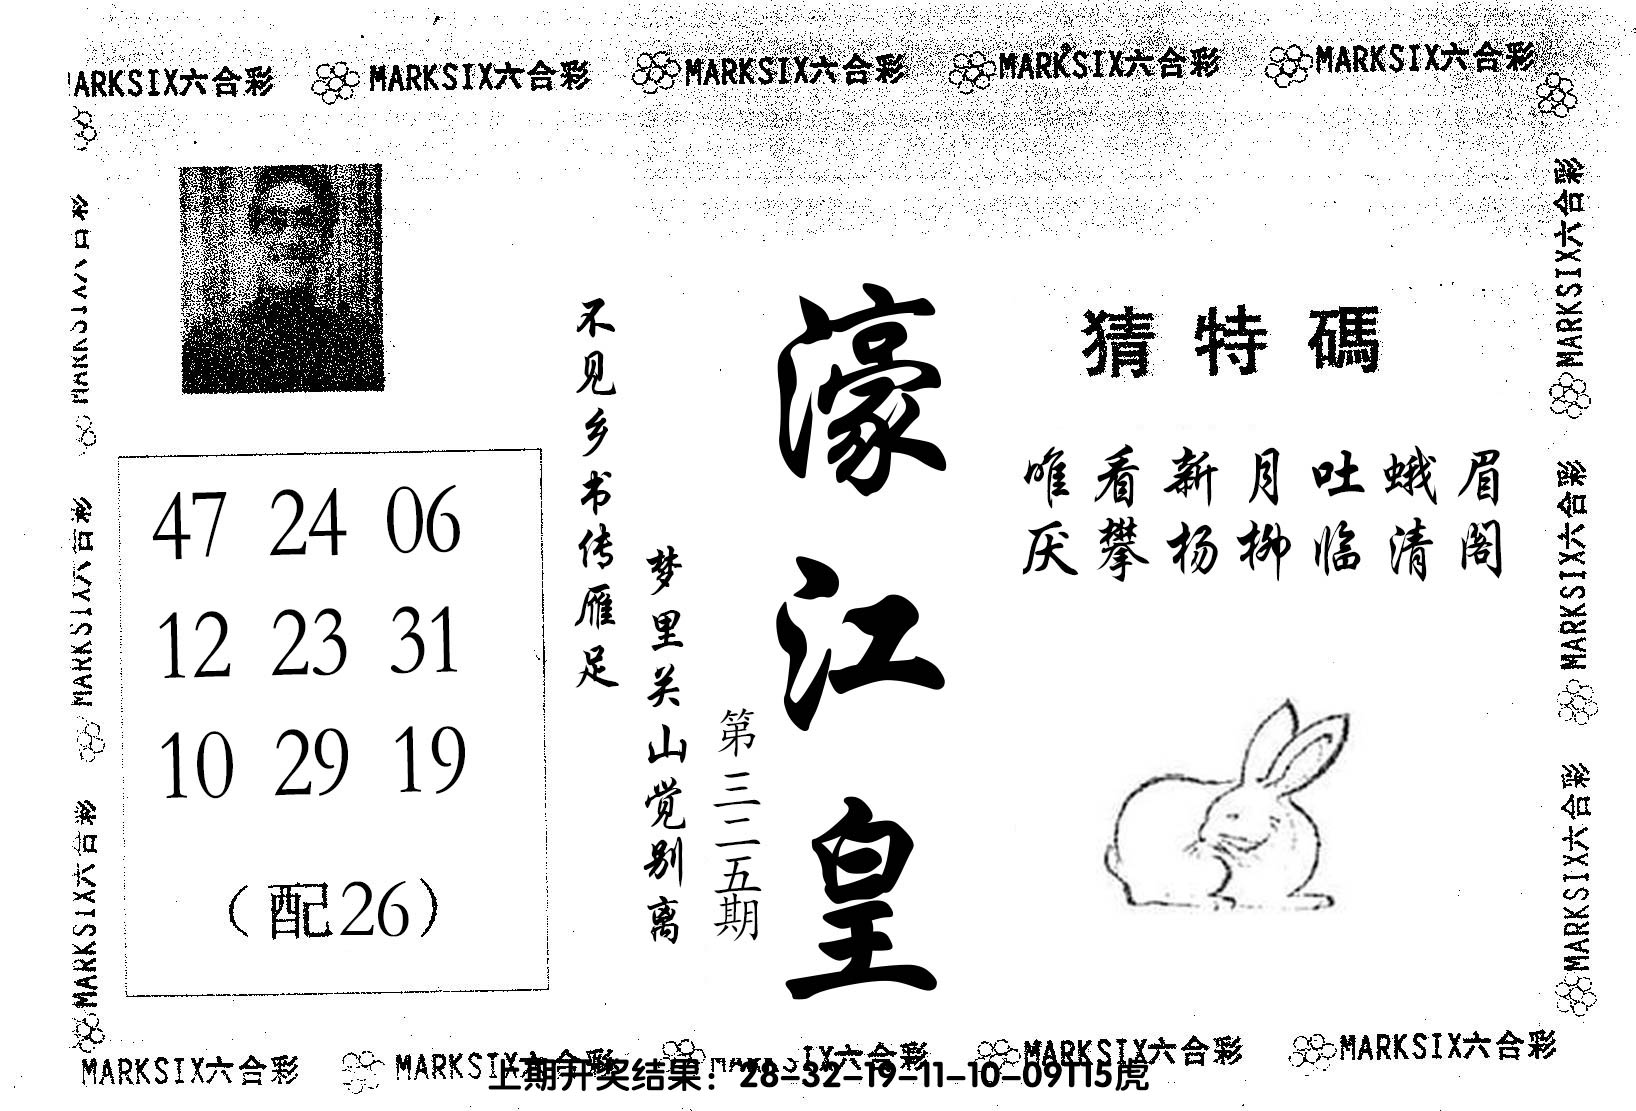 MARKSIX六合彩 MARKSIX六合彩 MARKSIX六合彩 MARKSIX六合彩 MARKSIX六合彩
MARKSIX六合彩
MARKSIX六合彩
MARKSIX六合彩
MARKSIX六合彩
MARKSIX六合彩
MARKSIX六合彩
47 24 06
12 23 31
10 29 19
（配26）
不见乡书传雁足
梦里关山觉别离
第三二五期
濠江皇
猜特碼
唯看新月吐蛾眉
厌攀杨柳临清阁
MARKSIX六合彩 MARKSIX六合彩 MARKSIX六合彩 MARKSIX六合彩 MARKSIX六合彩
上期开奖结果：28-32-19-11-10-09T15虎